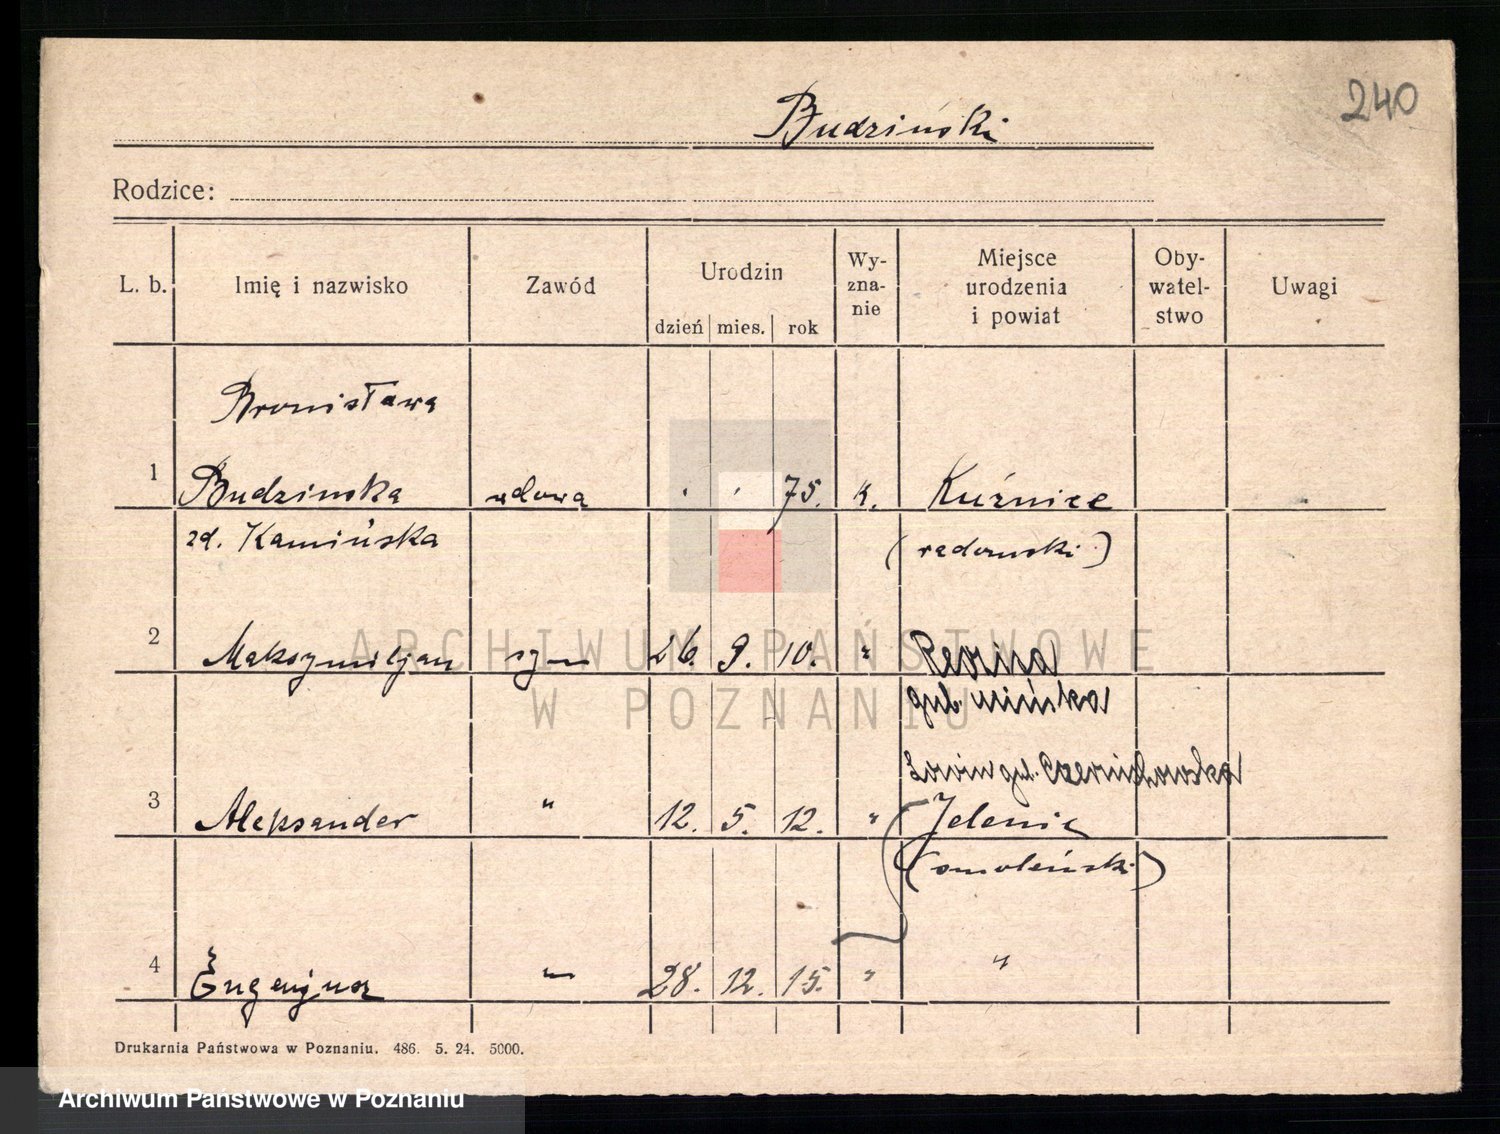 240
Budziński
Rodzice:
L. b. Imię i nazwisko Zawód Urodzin dzień mies. rok Wy-zna-nie Miejsce urodzenia i powiat Oby-watel-stwo Uwagi
Bronisława
1 Budzinska wdowa . . 75. k. Kuźnice
zd. Kamińska (radomski)
2 Maksymiljan syn 26. 9. 10. " Rewna
gub. mińska
gub. Czernichowska
3 Aleksander " 12. 5. 12. " Jelenie
(smoleński)
4 Eugenjusz " 28. 12. 15. " "
Drukarnia Państwowa w Poznaniu. 486. 5. 24. 5000.
ARCHIWUM PAŃSTWOWE
W POZNANIU
Archiwum Państwowe w Poznaniu